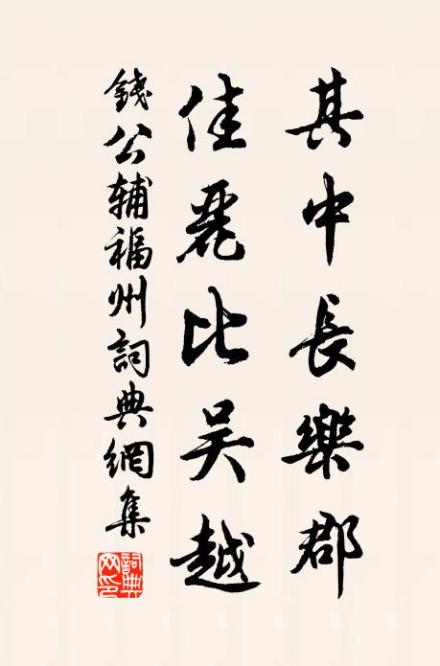 其中長樂郡
佳麗比吴越
錢公辅福州詞典網集
詞典网印